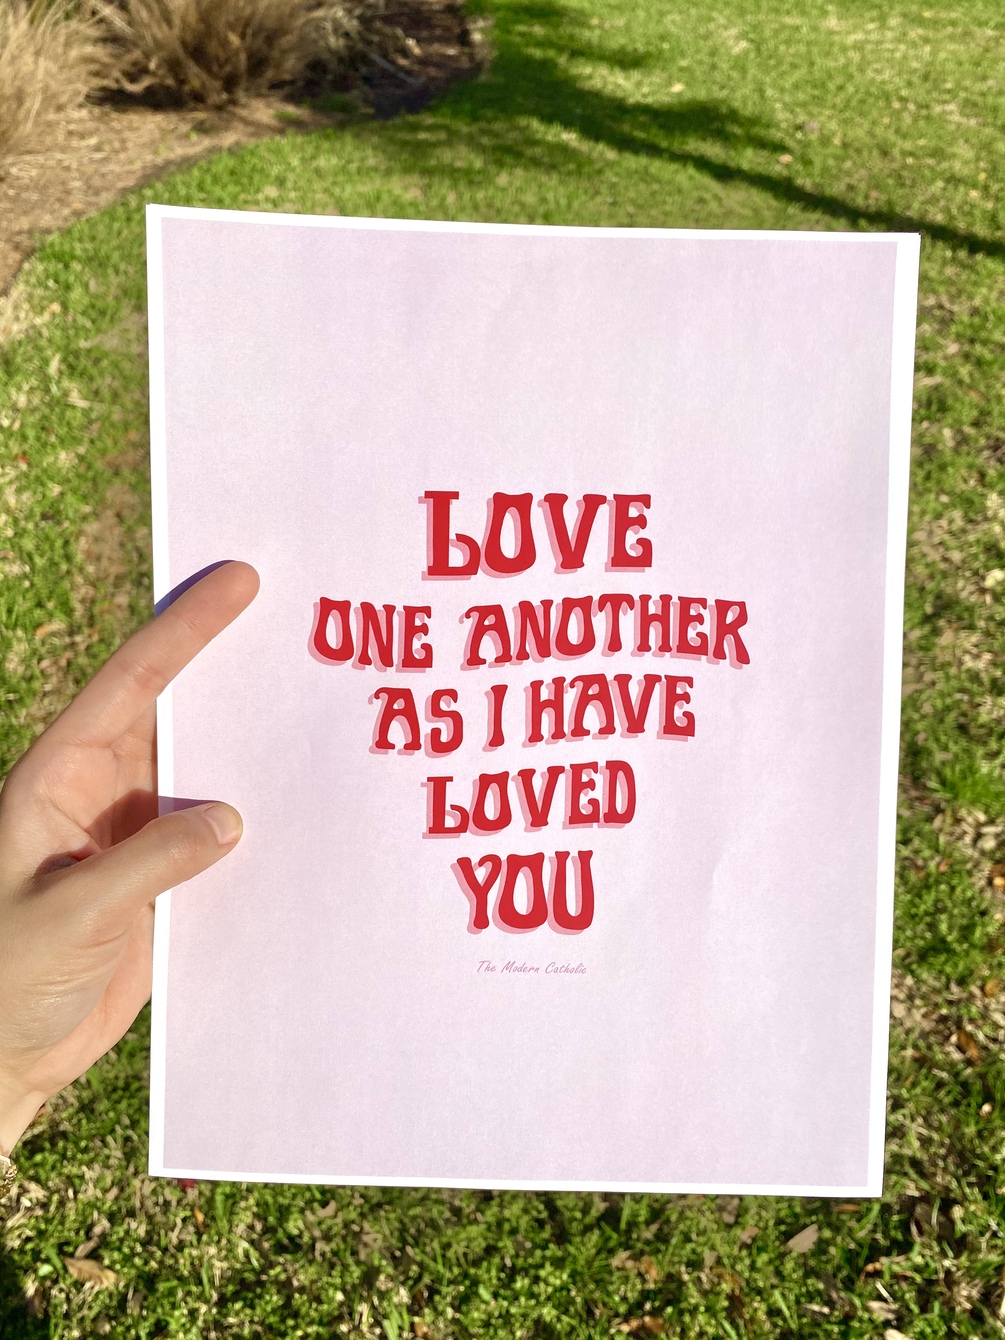 LOVE
ONE ANOTHER
AS I HAVE
LOVED
YOU
The Modern Catholic